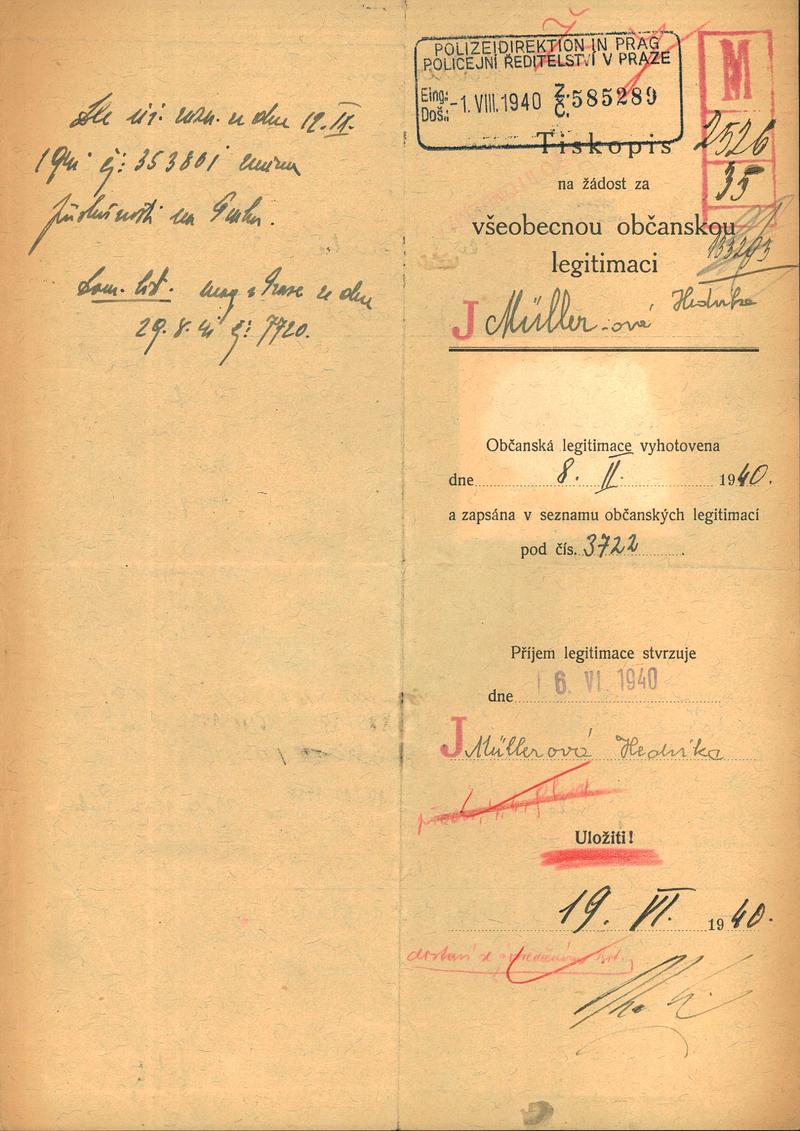 Dle úř. ozn. ze dne 12. II.
1941 čj: 353801 změna
příslušnosti na Prahu.
Dom. list. mag v Praze ze dne
29. 8. 41 čj: 7720.
POLIZEIDIREKTION IN PRAG
POLICEJNÍ ŘEDITELSTVÍ V PRAZE
Eing.: Doš.: -1. VIII. 1940 Z. Č. 585289
M
2526
35
Tiskopis
na žádost za
všeobecnou občanskou
legitimaci
J Müller-ová Hedvika
Občanská legitimace vyhotovena
dne 8. II. 1940.
a zapsána v seznamu občanských legitimací
pod čís. 3722.
Příjem legitimace stvrzuje
dne 6. VI. 1940
J Müllerová Hedvika
Uložiti!
19. VI. 1940.
dostaví se